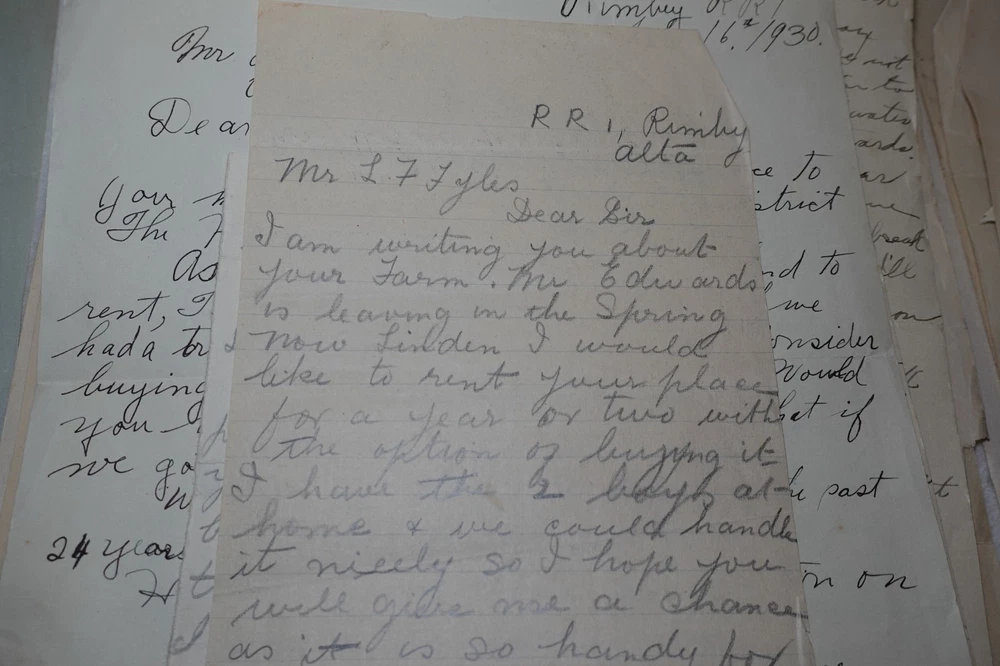 Rimby RR1
16. 1930.
Mr
Dear
ce to
your
strict
The
As
nd to
rent, I
we
had a tr
onsider
buying
Would
you
at if
we go
he past
24 years
on on
H
R R 1, Rimby
alta
Mr L. F Tyles
Dear Sir
I am writing you about
your Farm. Mr Edwards
is leaving in the Spring
Now Linden I would
like to rent your place
for a year or two with
the option of buying it
I have the 2 boys at
home & we could handle
it nicely so I hope you
will give me a chance
as it is so handy for
not
to
water
ards.
ar
me
break
I'll
on
it